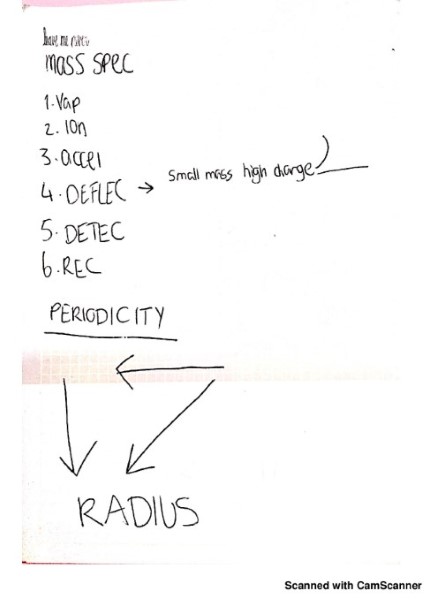 MASS SPEC
1. Vap
2. ION
3. accel
4. DEFLEC → small mass high charge
5. DETEC
6. REC
PERIODICITY
RADIUS
Scanned with CamScanner